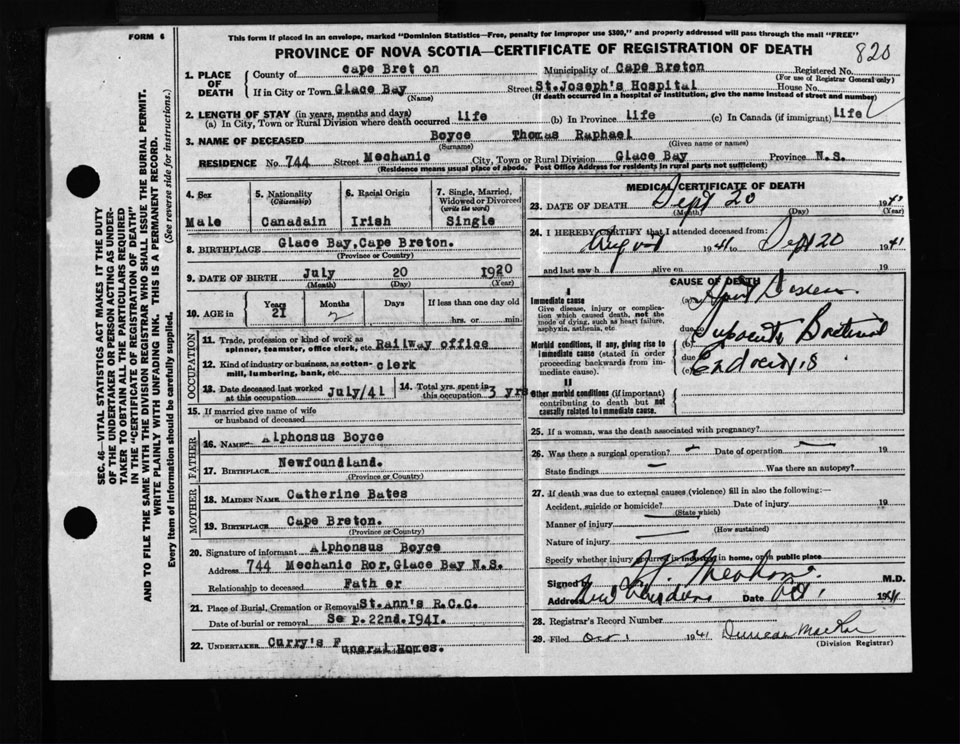 FORM 6
This form if placed in an envelope, marked "Dominion Statistics—Free, penalty for improper use $300," and properly addressed will pass through the mail "FREE"
PROVINCE OF NOVA SCOTIA—CERTIFICATE OF REGISTRATION OF DEATH
820
SEC. 46—VITAL STATISTICS ACT MAKES IT THE DUTY
OF THE UNDERTAKER OR PERSON ACTING AS UNDER-
TAKER TO OBTAIN ALL THE PARTICULARS REQUIRED
IN THE "CERTIFICATE OF REGISTRATION OF DEATH"
AND TO FILE THE SAME WITH THE DIVISION REGISTRAR WHO SHALL ISSUE THE BURIAL PERMIT.
WRITE PLAINLY WITH UNFADING INK. THIS IS A PERMANENT RECORD.
Every item of Information should be carefully supplied. (See reverse side for instructions.)
1. PLACE OF DEATH
County of Cape Bret on Municipality of Cape Breton Registered No.
(For use of Registrar General only)
If in City or Town Glace Bay Street St.Joseph's Hospital House No.
(Name) (If death occurred in a hospital or institution, give the name instead of street and number)
2. LENGTH OF STAY (in years, months and days)
(a) In City, Town or Rural Division where death occurred life (b) In Province life (c) In Canada (if immigrant) life
3. NAME OF DECEASED Boyce Thomas Raphael
(Surname) (Given name or names)
RESIDENCE No. 744 Street Mechanic City, Town or Rural Division Glace Bay Province N.S.
(Residence means usual place of abode. Post Office Address for residents in rural parts not sufficient)
4. Sex
Male
5. Nationality
(Citizenship)
Canadain
6. Racial Origin
Irish
7. Single, Married,
Widowed or Divorced
(write the word)
Single
8. BIRTHPLACE Glace Bay,Cape Breton.
(Province or Country)
9. DATE OF BIRTH July 20 1920
(Month) (Day) (Year)
10. AGE in Years Months Days If less than one day old
21 2 hrs. or min.
OCCUPATION
11. Trade, profession or kind of work as
spinner, teamster, office clerk, etc. Railway office
12. Kind of industry or business, as cotton-
mill, lumbering, bank, etc. clerk
13. Date deceased last worked
at this occupation July/41
14. Total yrs. spent in
this occupation 3 yrs
15. If married give name of wife
or husband of deceased
FATHER
16. NAME Alphonsus Boyce
17. BIRTHPLACE Newfoundland.
(Province or Country)
MOTHER
18. MAIDEN NAME Catherine Bates
19. BIRTHPLACE Cape Breton.
(Province or Country)
20. Signature of informant Alphonsus Boyce
Address 744 Mechanic Ror,Glace Bay N.S.
Relationship to deceased Fath er
21. Place of Burial, Cremation or Removal St.Ann's R.C.C.
Date of burial or removal Se p.22nd.1941.
22. UNDERTAKER Curry's F uneral Homes.
MEDICAL CERTIFICATE OF DEATH
23. DATE OF DEATH Sept 20 194
(Month) (Day) (Year)
24. I HEREBY CERTIFY that I attended deceased from:
August 1941 to Sept 20 1941
and last saw h alive on 19
CAUSE OF DEATH
I
Immediate cause
Give disease, injury or complica-
tion which caused death, not the
mode of dying, such as heart failure,
asphyxia, asthenia, etc.
(a) Heart Disease
due
Morbid conditions, if any, giving rise to
immediate cause (stated in order
proceeding backwards from im-
mediate cause).
(b) Subacute Bacterial
due
(c) Endocarditis
II
Other morbid conditions (if important)
contributing to death but not
causally related to immediate cause.
25. If a woman, was the death associated with pregnancy?
26. Was there a surgical operation? - Date of operation — 19
State findings — Was there an autopsy?
27. If death was due to external causes (violence) fill in also the following:—
Accident, suicide or homicide? Date of injury 19
(State which)
Manner of injury
(How sustained)
Nature of injury
Specify whether injury occurred in industry, in home, or in public place
Signed by M.D.
Address New Aberdeen Date Oct 1 1941
28. Registrar's Record Number
29. Filed Oct 1 1941 Duncan MacRae
(Division Registrar)